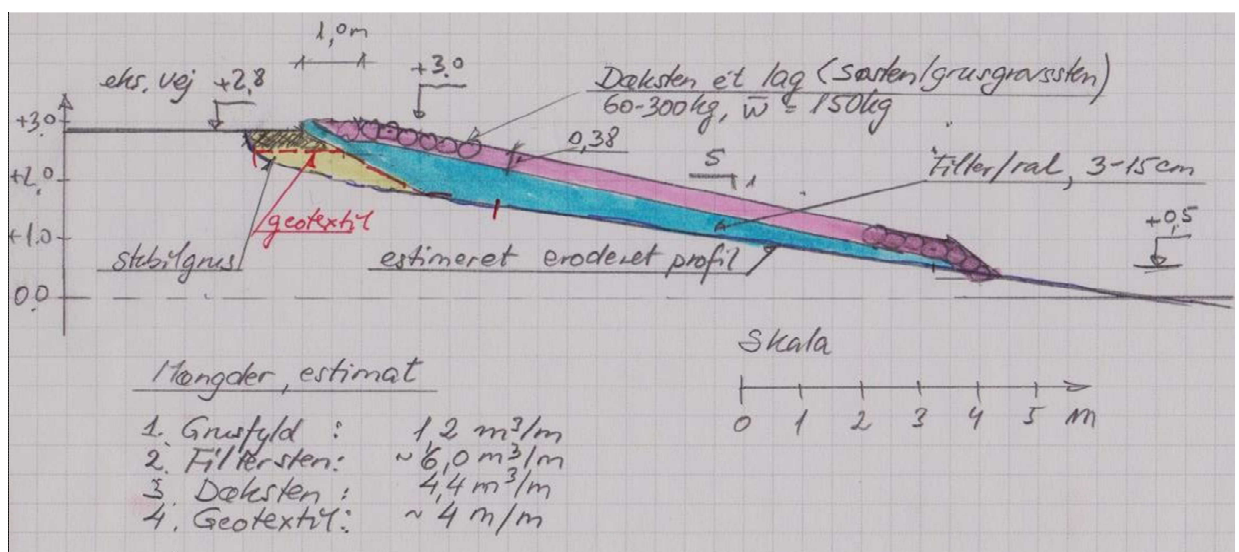 1,0m
eks. vej +2,8
+3.0
Dæksten et lag (søsten/grusgravssten)
60-300kg, w̄ = 150kg
+3.0
0,38
5
1
Filter/ral, 3-15cm
+2,0
geotextil
+0,5
+1.0
stabilgrus
estimeret eroderet profil
0.0
Skala
0 1 2 3 4 5 m
Mængder, estimat
1. Grusfyld : 1,2 m³/m
2. Filtersten: ~6,0 m³/m
3. Dæksten : 4,4 m³/m
4. Geotextil: ~ 4 m/m